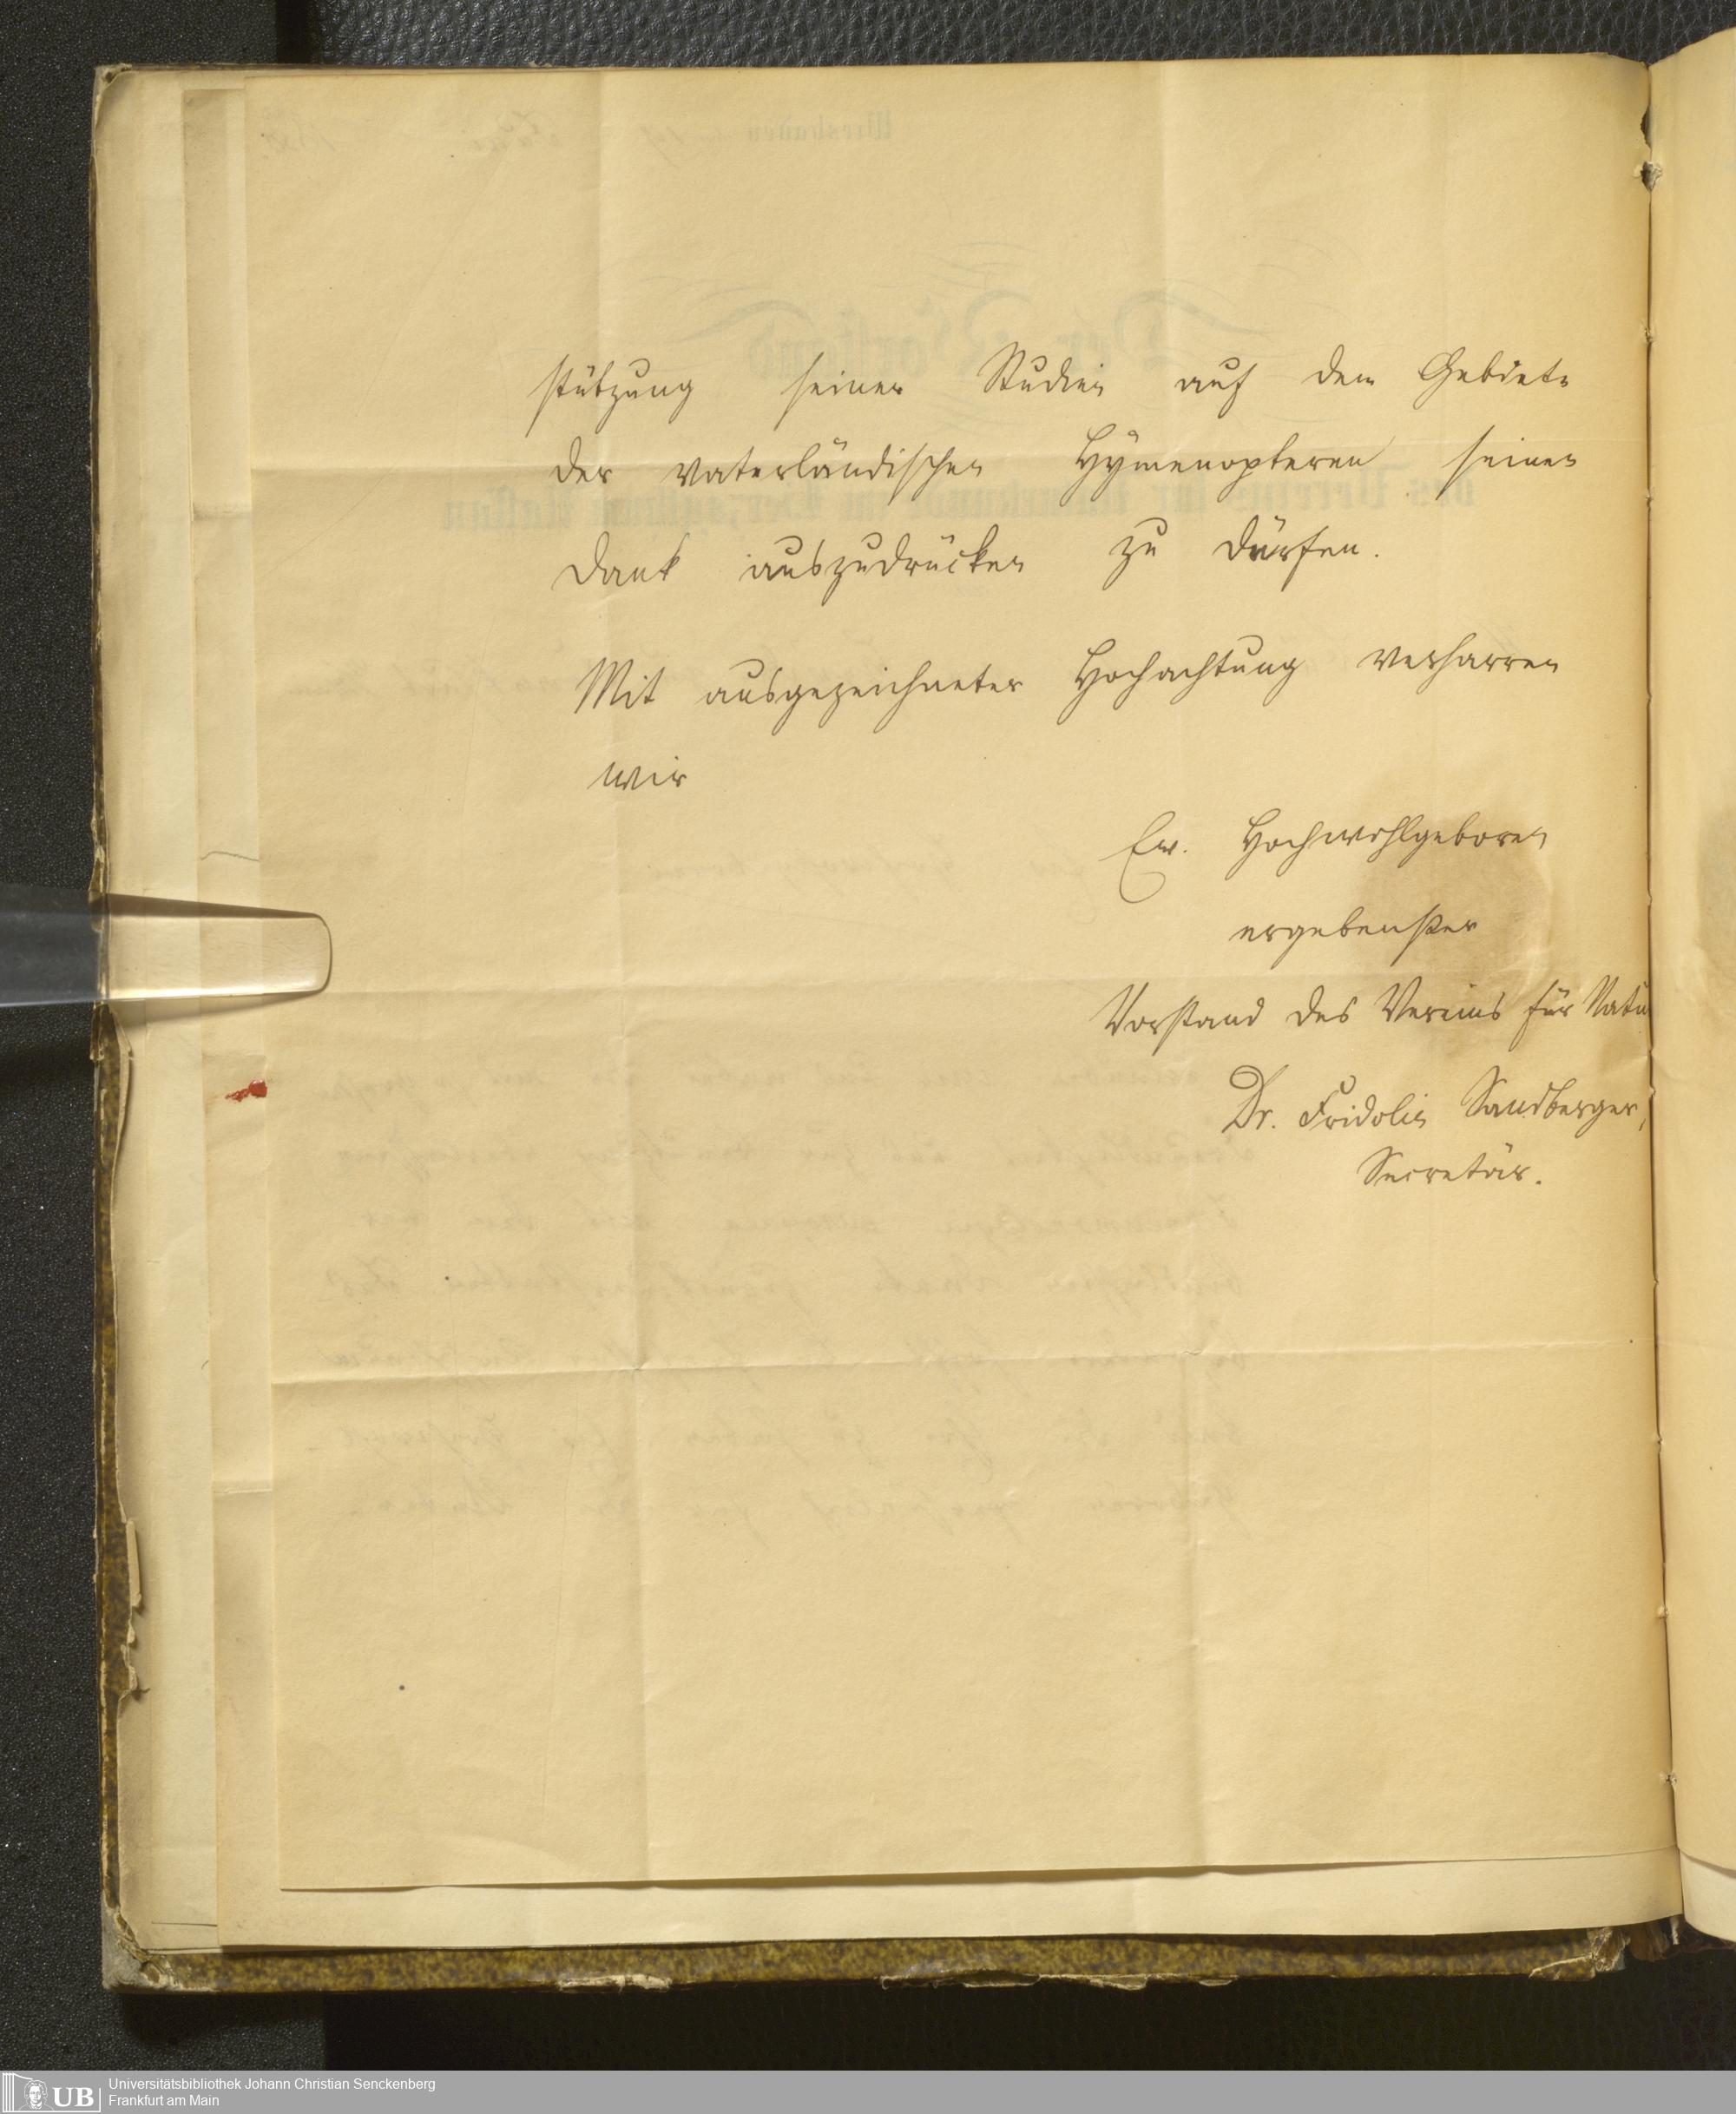 stützung seiner Studien auf dem Gebiete
der vaterländischen Hÿmenopteren seinen
Dank auszudrücken zu dürfen.
Mit ausgezeichneter Hochachtung verharren
wir
Ew. Hochwohlgeboren
ergebenster
Vorstand des Vereins für Natu
Dr. Fridolin Sandberger,
Secretär.
UB
Universitätsbibliothek Johann Christian Senckenberg
Frankfurt am Main